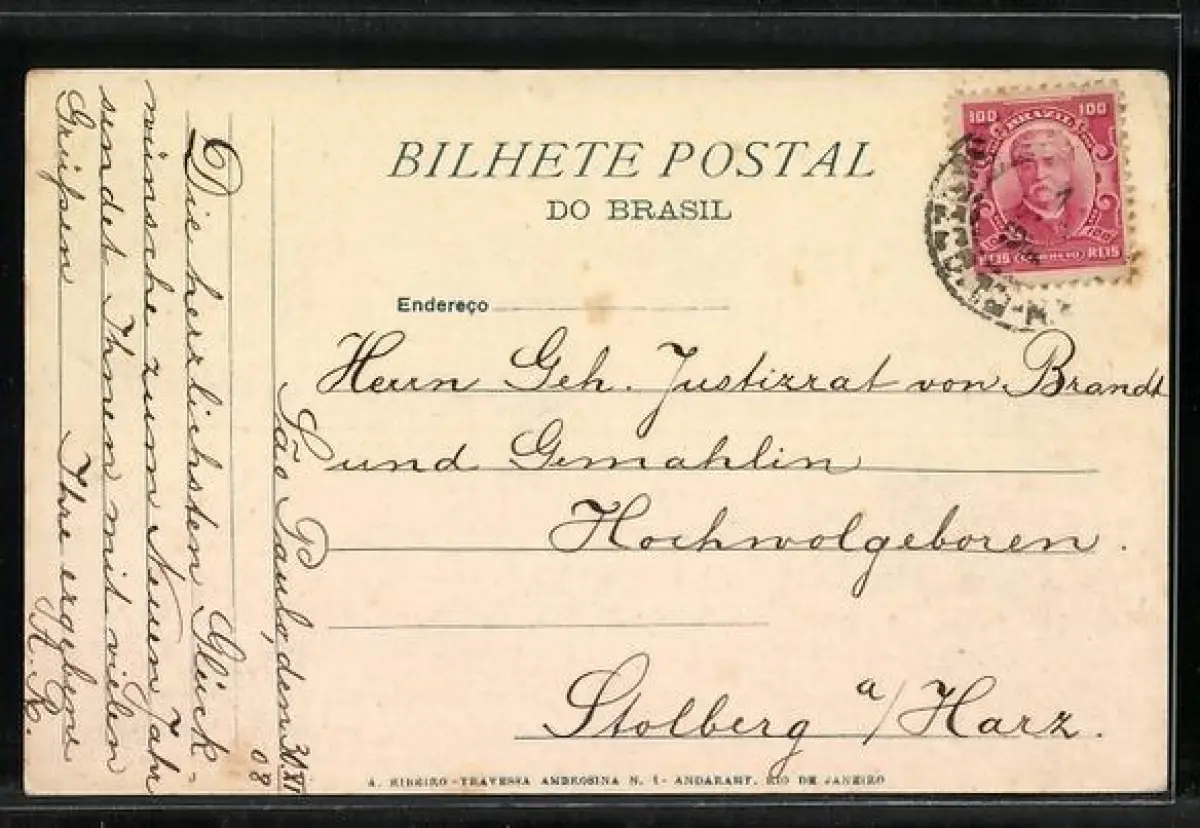 BILHETE POSTAL
DO BRASIL
100 100
BRAZIL
REIS REIS
Endereço
Herrn Geh. Justizrat von Brandt
und Gemahlin
Hochwolgeboren.
Stolberg a/Harz.
São Paulo, den 30.XI
08
Die herzlichsten Glück-
wünsche zum Neuen Jahr
sendet Ihnen mit vielen
Grüssen Ihre ergebene
A. R.
A. RIBEIRO - TRAVESSA AMBROSINA N. 1 - ANDARAHY, RIO DE JANEIRO